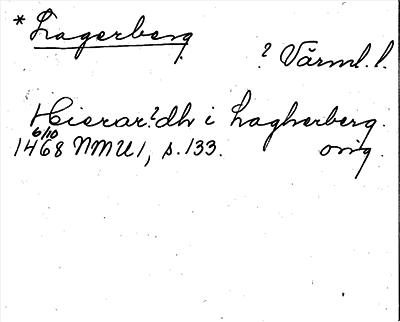 * Lagerberg
? Värml. l.
Hierar?dh i Lagherberg.
6/10
1468 NMU 1, s. 133. orig.